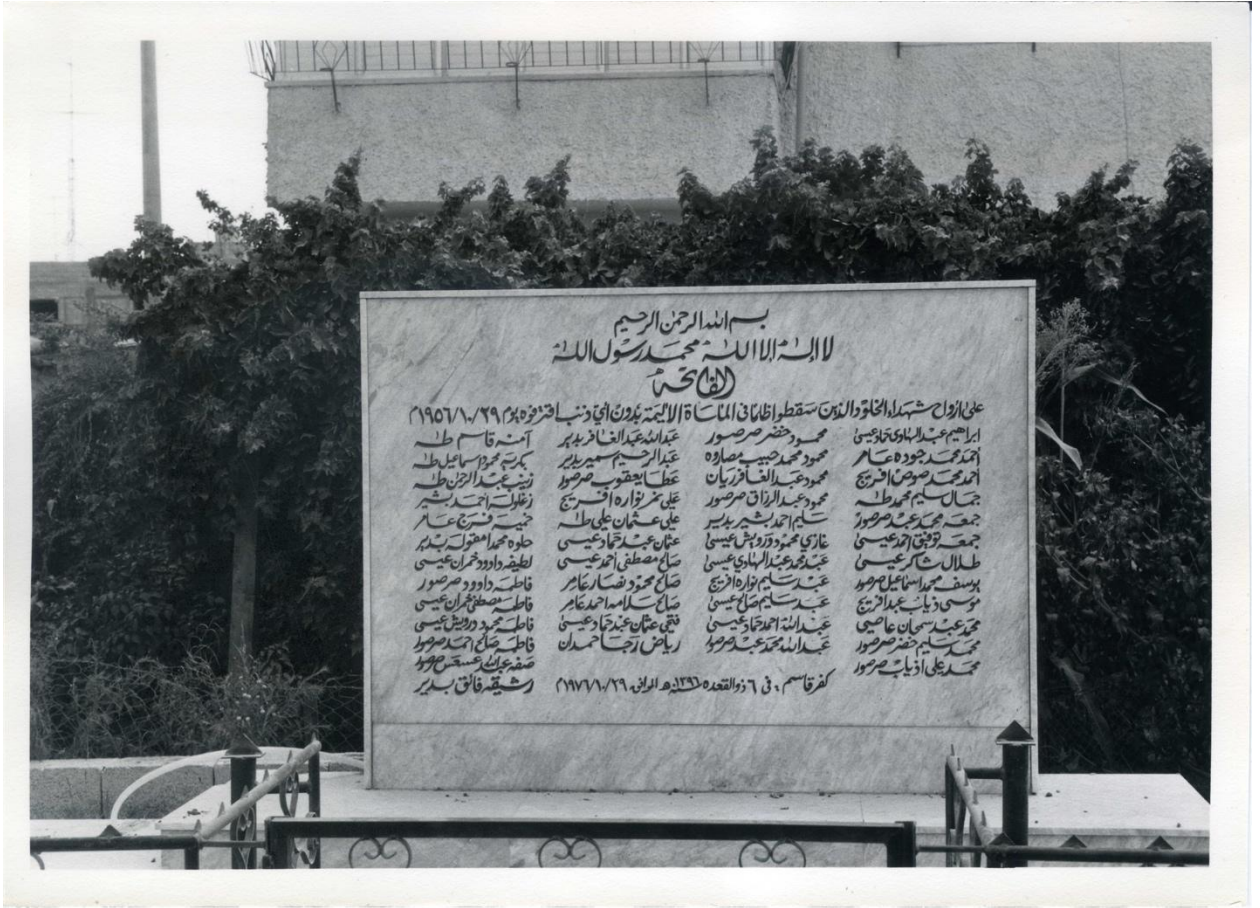 بسم الله الرحمن الرحيم
لا اله الا الله محمد رسول الله
الفاتحة
على ارواح شهداء الخلود الذين سقطوا ظلما في المأساة الاليمة بدون اي ذنب اقترفوه يوم ٢٩/١٠/١٩٥٦م
ابراهيم عبد الهادي حماد عيسى
أحمد محمد جوده عامر
أحمد محمد صوص افريج
جمال سليم محمد طه
جمعه محمد عبد صرصور
جمعه توفيق احمد عيسى
طلال شاكر عيسى
يوسف محمد اسماعيل صرصور
موسى ذياب عبد افريج
محمد عبد سمحان عاصي
محمد سليم خضر صرصور
محمد علي اذياب صرصور
محمود خضر صرصور
محمود محمد حبيب مصاروه
محمود عبد الغافر ريان
محمود عبد الرزاق صرصور
سليم احمد بشير بدير
غازي محمود درويش عيسى
عبد محمد عبد الهادي عيسى
عبد سليم نواره افريج
عبد سليم صالح عيسى
عبد الله احمد حماد عيسى
عبد الله محمد عبد صرصور
عبد الله عبد الغافر بدير
عبد الرحيم سمير بدير
عطا يعقوب صرصور
علي نمر نواره افريج
علي عثمان علي طه
عثمان عبد حماد عيسى
صالح مصطفى احمد عيسى
صالح محمود نصار عامر
صالح سلامه احمد عامر
فتحي عثمان عبد حماد عيسى
رياض رجا حمدان
آمنه قاسم طه
بكريه محمود اسماعيل طه
زينب عبد الرحمن طه
زغلوله احمد بشير
خميسه فرج عامر
حلوه محمد بدير
لطيفه داوود عيسى
فاطمه داوود صرصور
فاطمه مصطفى عيسى
فاطمه محمود درويش عيسى
فاطمه صالح احمد صرصور
صفه عبد الله صرصور
رشيقه فائق بدير
كفر قاسم في ٦ ذو القعده ١٣٩٦ سنة ه الموافق ٢٩/١٠/١٩٧٦م